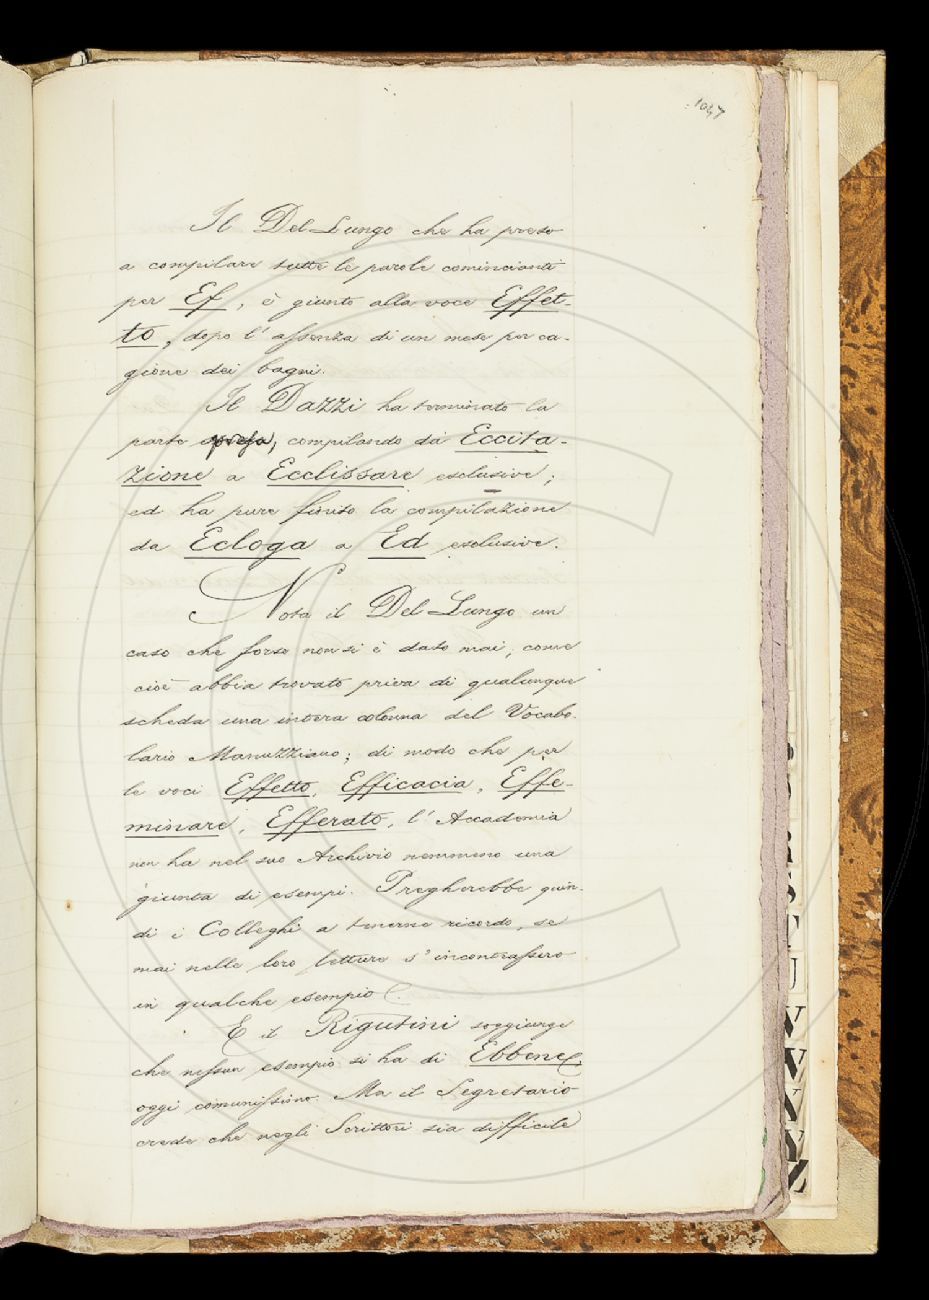 1047
Il Del Lungo che ha preso
a compilare tutte le parole comincianti
per Ef, è giunto alla voce Effet-
to, dopo l'assenza di un mese per ca-
gione dei bagni.
Il Dazzi ha terminato la
parte presa, compilando da Eccita-
zione a Ecclissare esclusive;
ed ha pure finito la compilazione
da Ecloga a Ed esclusive.
Nota il Del Lungo un
caso che forse non si è dato mai, come
cioè abbia trovato priva di qualunque
scheda una intera colonna del Vocabo-
lario Manuzziano; di modo che per
le voci Effetto, Efficacia, Effe-
minare, Efferato, l'Accademia
non ha nel suo Archivio nemmeno una
giunta di esempi. Pregherebbe quin-
di i Colleghi a tenerne ricordo, se
mai nelle loro letture s'incontrassero
in qualche esempio.
E il Rigutini soggiunge
che nessun esempio si ha di Ebbene,
oggi comunissimo. Ma il Segretario
crede che negli Scrittori sia difficile
R
S
T
U
V
W
X
Y
Z